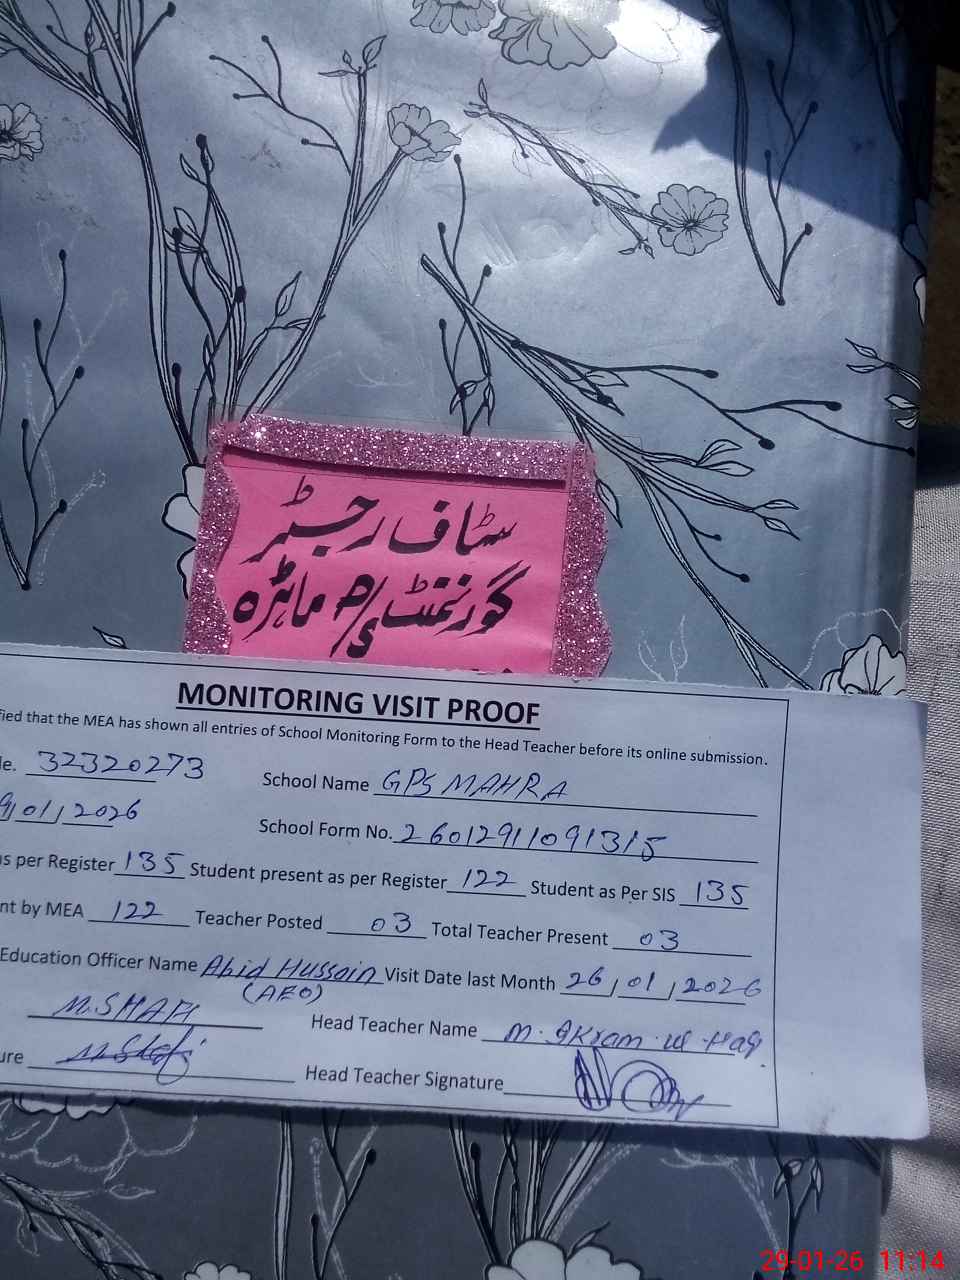 سٹاف رجسٹر
گورنمنٹ P/S ماہڑہ
MONITORING VISIT PROOF
fied that the MEA has shown all entries of School Monitoring Form to the Head Teacher before its online submission.
de. 32320273 School Name GPS MAHRA
9/01/2026 School Form No. 26012911091315
as per Register 135 Student present as per Register 122 Student as Per SIS 135
nt by MEA 122 Teacher Posted 03 Total Teacher Present 03
Education Officer Name Abid Hussain (AEO) Visit Date last Month 26/01/2026
M. SHAFI Head Teacher Name M. Akram ul Haq
ure M Shafi Head Teacher Signature
29-01-26 11:14